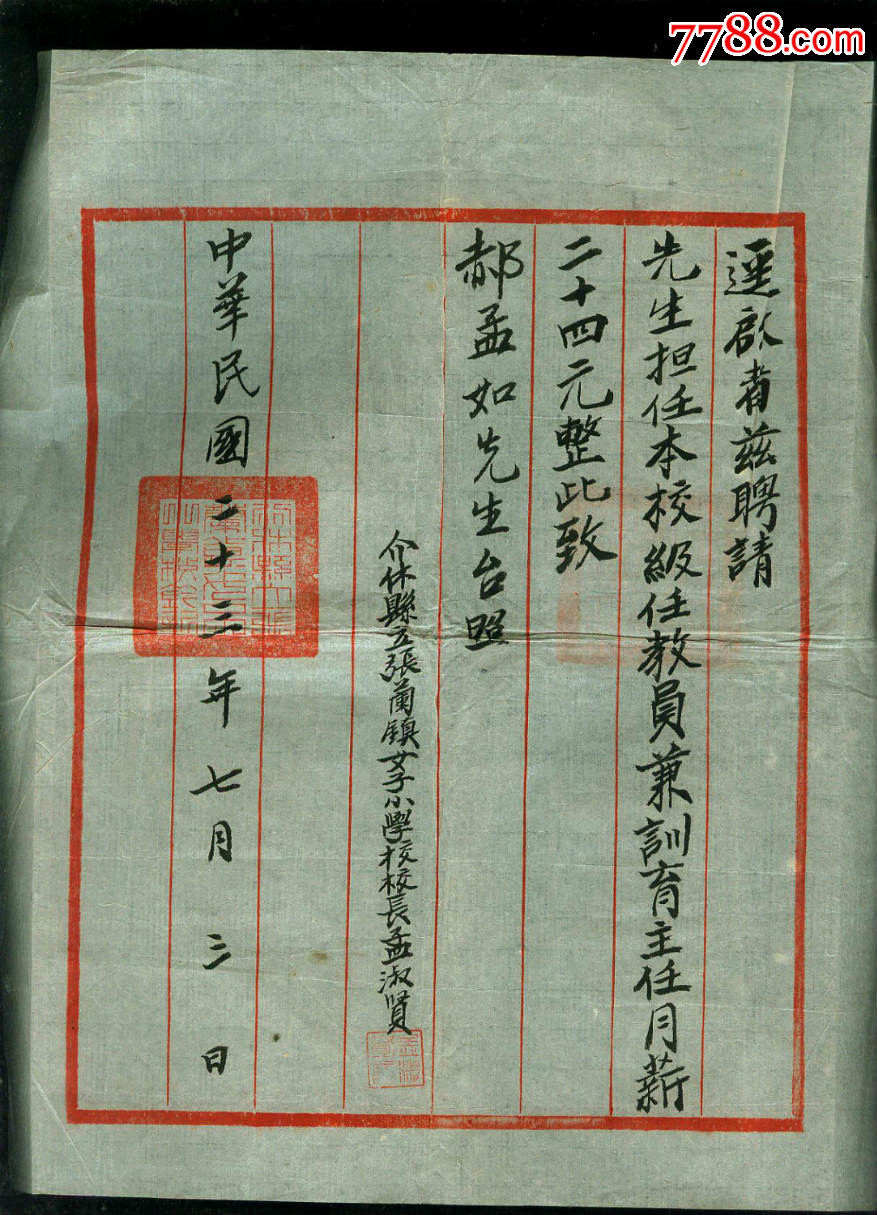 7788.com
逕啟者兹聘請
先生担任本校級任教員兼訓育主任月薪
二十四元整此致
郝孟如先生台照
介休縣立張蘭鎮女子小學校校長孟淑賢
中華民國二十三年七月三日